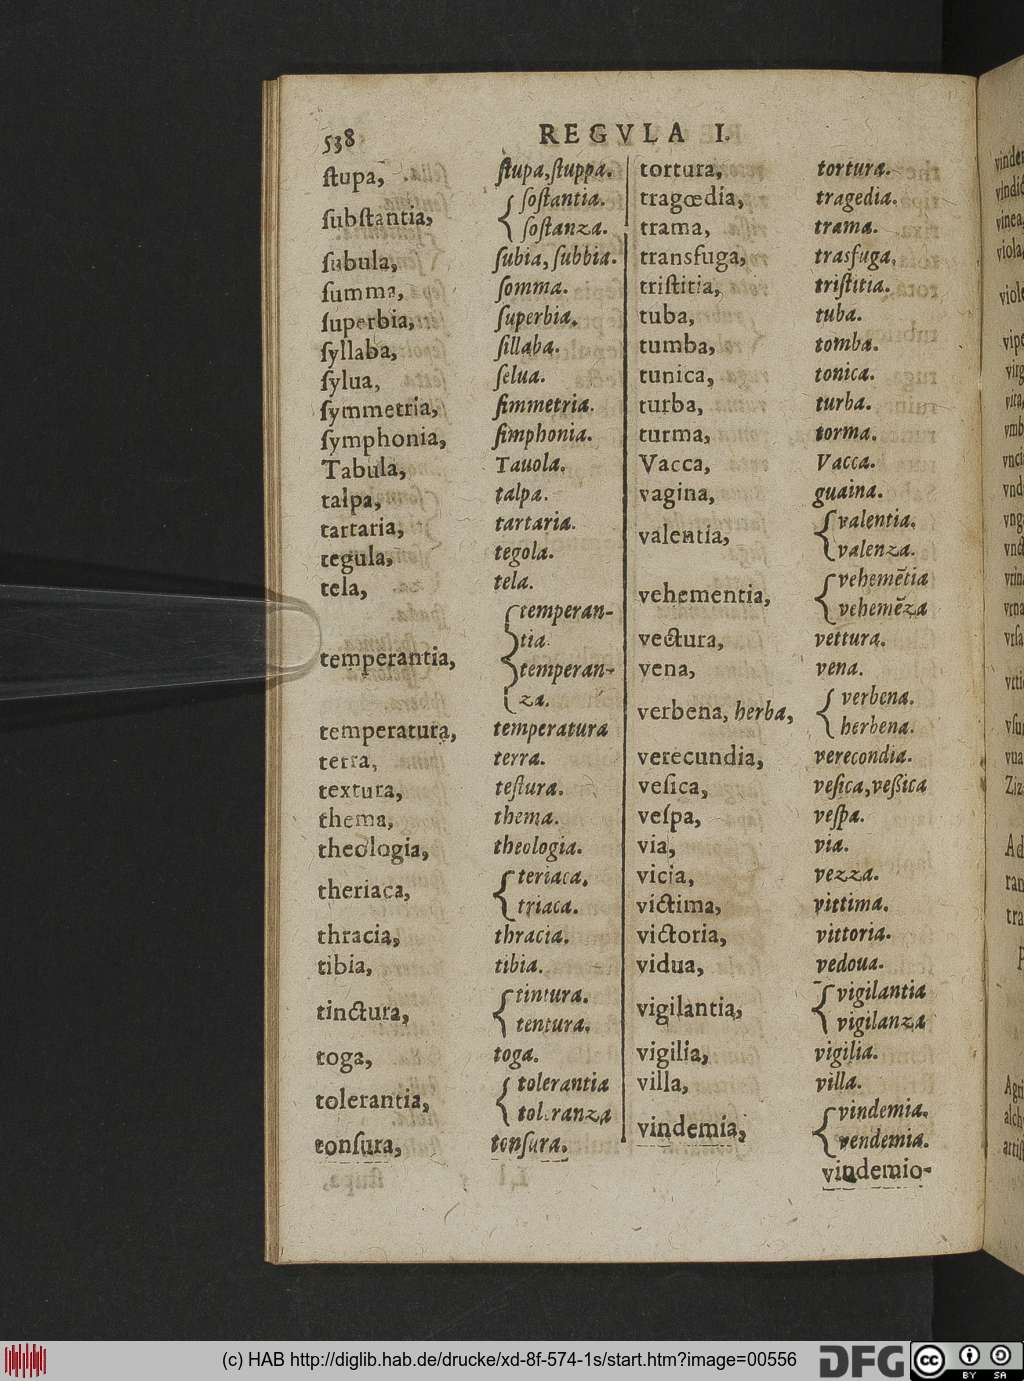 538 REGVLA I.
ſtupa, ſtupa, ſtuppa.
ſubſtantia, ſoſtantia.
ſoſtanza.
ſubula, ſubia, ſubbia.
ſumma, ſomma.
ſuperbia, ſuperbia.
ſyllaba, ſillaba.
ſylua, ſelua.
ſymmetria, ſimmetria.
ſymphonia, ſimphonia.
Tabula, Tauola.
talpa, talpa.
tartaria, tartaria.
tegula, tegola.
tela, tela.
temperantia, temperan-
tia.
temperan-
za.
temperatura, temperatura
terra, terra.
textura, teſtura.
thema, thema.
theologia, theologia.
theriaca, teriaca.
triaca.
thracia, thracia.
tibia, tibia.
tinctura, tintura.
tentura.
toga, toga.
tolerantia, tolerantia
toleranza
tonſura, tonſura.
tortura, tortura.
tragœdia, tragedia.
trama, trama.
transfuga, trasfuga.
triſtitia, triſtitia.
tuba, tuba.
tumba, tomba.
tunica, tonica.
turba, turba.
turma, torma.
Vacca, Vacca.
vagina, guaina.
valentia, valentia.
valenza.
vehementia, vehemẽtia
vehemẽza
vectura, vettura.
vena, vena.
verbena, herba, verbena.
herbena.
verecundia, verecondia.
veſica, veſica, veßica
veſpa, veſpa.
via, via.
vicia, vezza.
victima, vittima.
victoria, vittoria.
vidua, vedoua.
vigilantia, vigilantia
vigilanza
vigilia, vigilia.
villa, villa.
vindemia, vindemia.
vendemia.
vindemio-
(c) HAB http://diglib.hab.de/drucke/xd-8f-574-1s/start.htm?image=00556 DFG cc BY SA